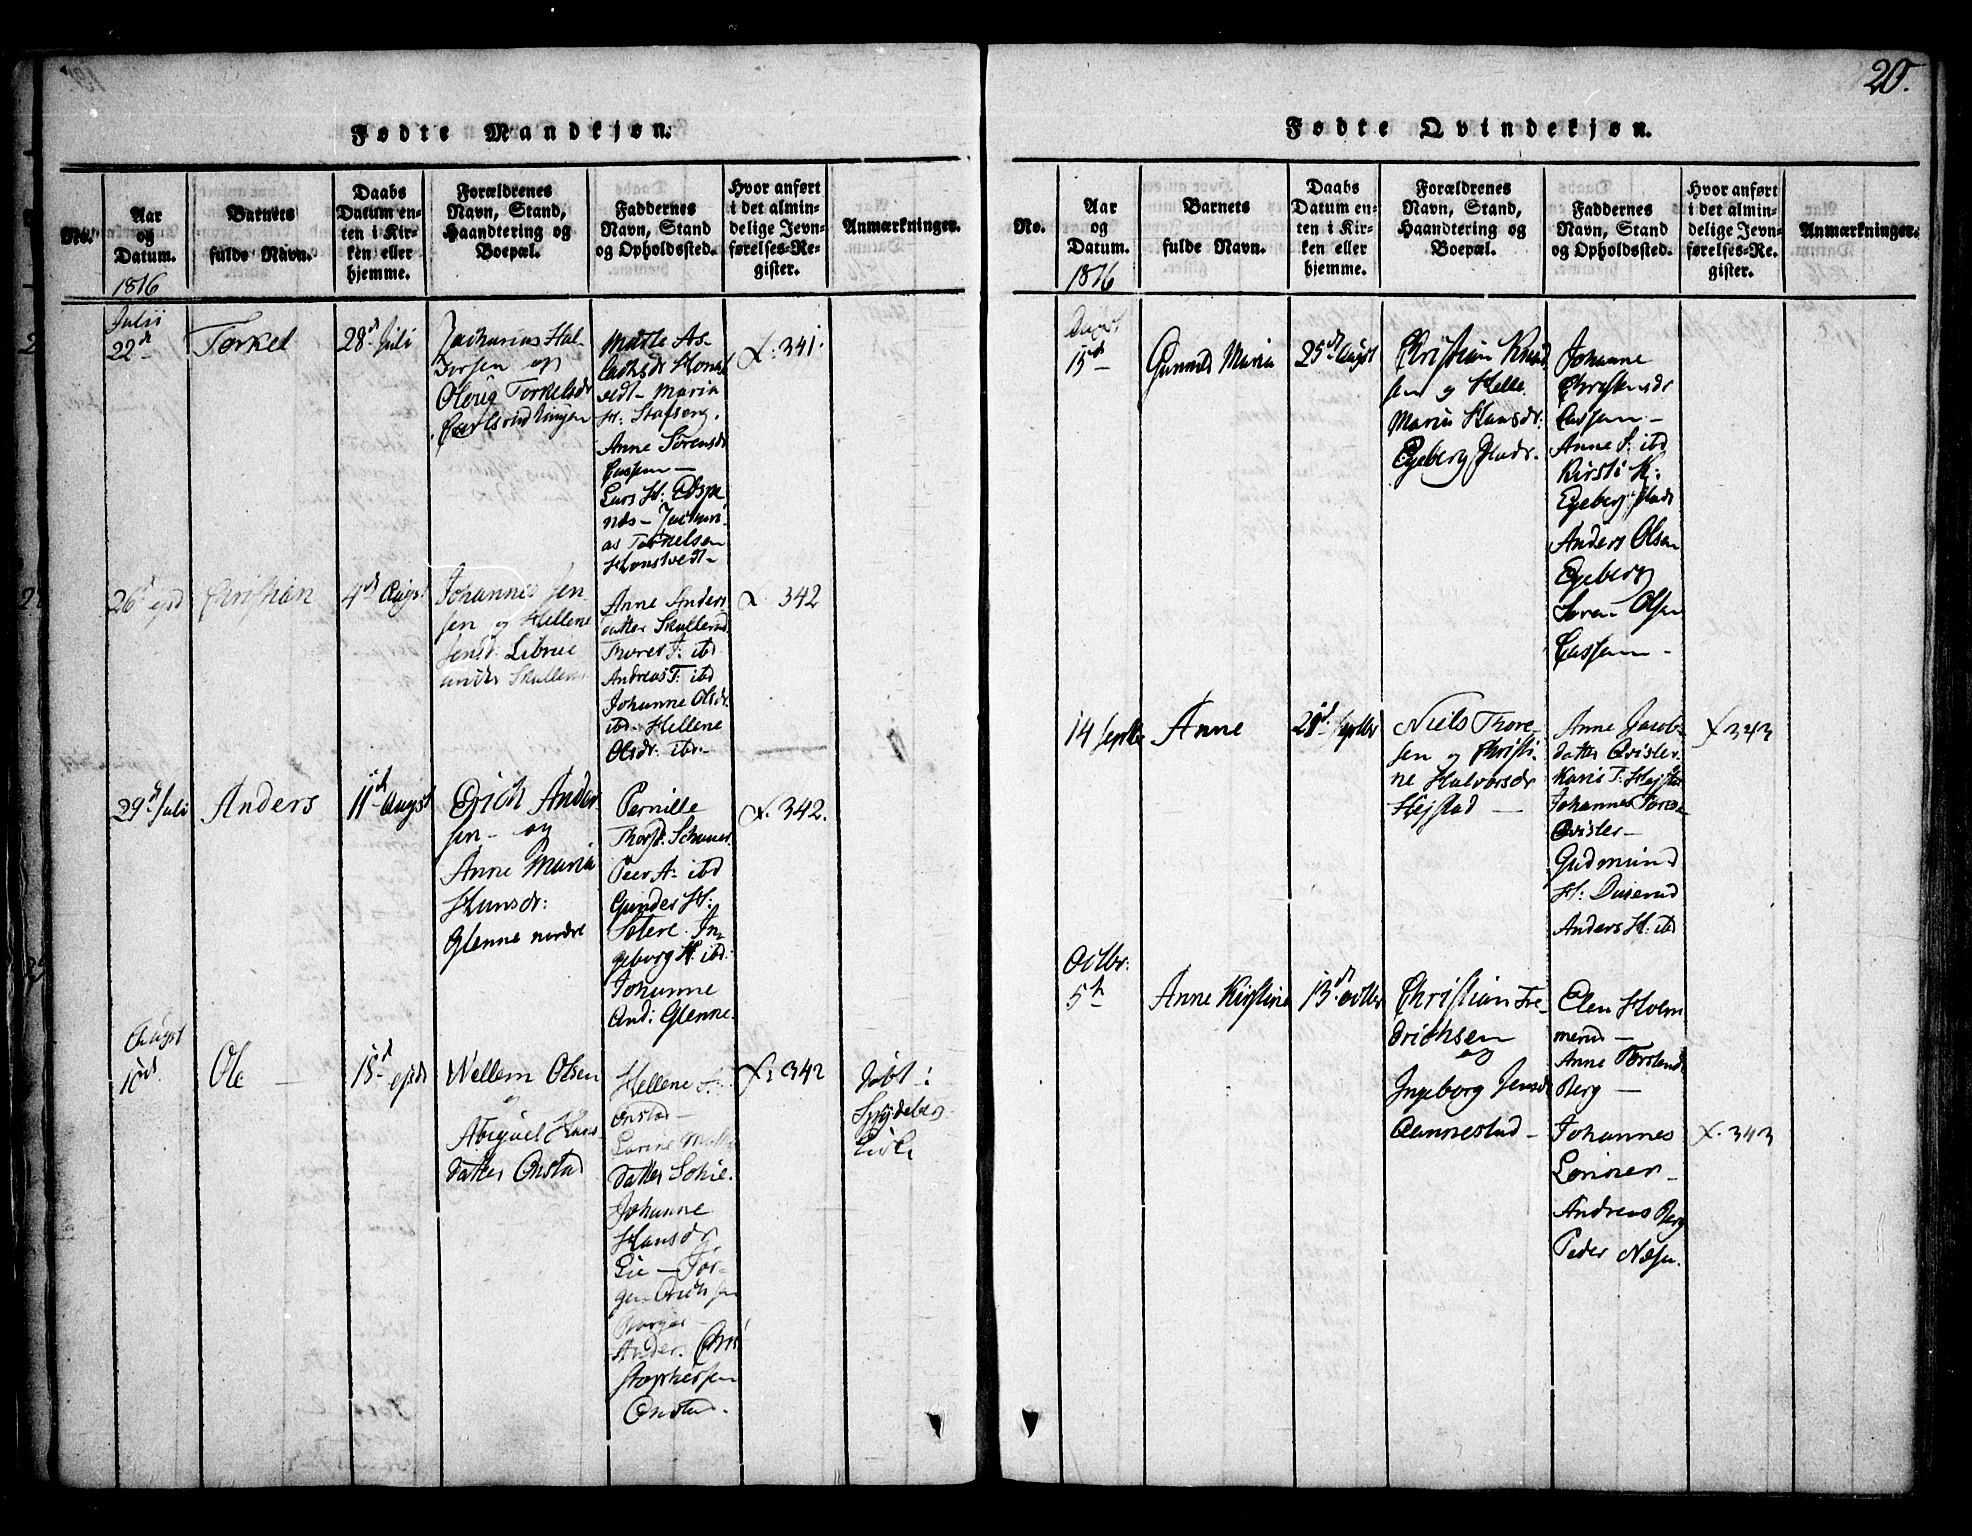 20.
Fødte Mandkjøn.
No.
Aar
og
Datum.
1816
Barnets
fulde Navn.
Daabs
Datum en-
ten i Kir-
ken eller
hjemme.
Forældrenes
Navn, Stand,
Haandtering og
Boepæl.
Faddernes
Navn, Stand
og Opholdssted.
Hvor anført
i det almin-
delige Jevn-
førelses-Re-
gister.
Anmærkninger.
Julii
22d
Torkel
28d Juli
Zacharias Hal-
vorsen og
Torkelsdr
Mathe As-
lachsdr Honst
vedt - Maria
H: Stafseng.
Anne Sørensdr
Cassem -
Lars H: Espe
næs - Zachari
as Torkelsen
Honstvedt -
X. 341.
26d ejsd
Christian
4d Augst
Johannes Jen-
sen og Hellene
Jensd:
under Skullerud
Anne Anders
datter Skullerud
Thorer T: ibd
Andreas T: ibd
Johanne Olsdr
ibd - Hellene
Olsdr: ibd -
X. 342
29d Juli
Anders
11d Augst
Erich Ander
sen - og
Anne Maria
Hansdr:
Glenne nordre
Pernille
Peer A - ibd
Gunder H:
In
geborg H: ibd:
Johanne
And: Glenne.
X. 342.
Augst
10d
Ole -
18d ejsd
Wellem Olsen
og
Abigael Hans
datter Onstad
Hellene
Onstad -
datter
Johanne
Hansdr
Lie - Jør-
gen Erichsen
Ander. Chri
stophersen
Onstad.
X: 342
Døbt i
Spydeberg
Kirke
Fødte Qvindekjøn.
No.
Aar
og
Datum.
1816
Barnets
fulde Navn.
Daabs
Datum en-
ten i Kir-
ken eller
hjemme.
Forældrenes
Navn, Stand,
Haandtering og
Boepæl.
Faddernes
Navn, Stand
og Opholdssted.
Hvor anført
i det almin-
delige Jevn-
førelses-Re-
gister.
Anmærkninger.
15d
Gunnild Maria
25d Augst
Christian Knud
sen og Helle
Maria Hansdr:
Egeberg Pladr.
Johanne
Christensdr
Cassem -
Anne S: ibd
Kirsti K:
Egeberg Pladr
Anders Olsen
Egeberg
Søren Olsen
Cassem -
14 Septbr
Anne
Septbr
Niels Thore-
sen og Christi-
ne Halvorsdr
Hejstad -
Anne Jacobs-
datter Qvisler.
Karis T: Hejstad
Johannes Tores
Qvisler -
Gudmund
H: Duserud
Anders H: ibd
X 343
Octbr:
5t
Anne Kirstine
13d octbr
Christian Fre
drichsen
og
Ingeborg Jensdr
Aannestad -
Elen Holm
merud -
Anne Torstensd
Berg -
Johannes
Andreas Berg
Peder
X. 343